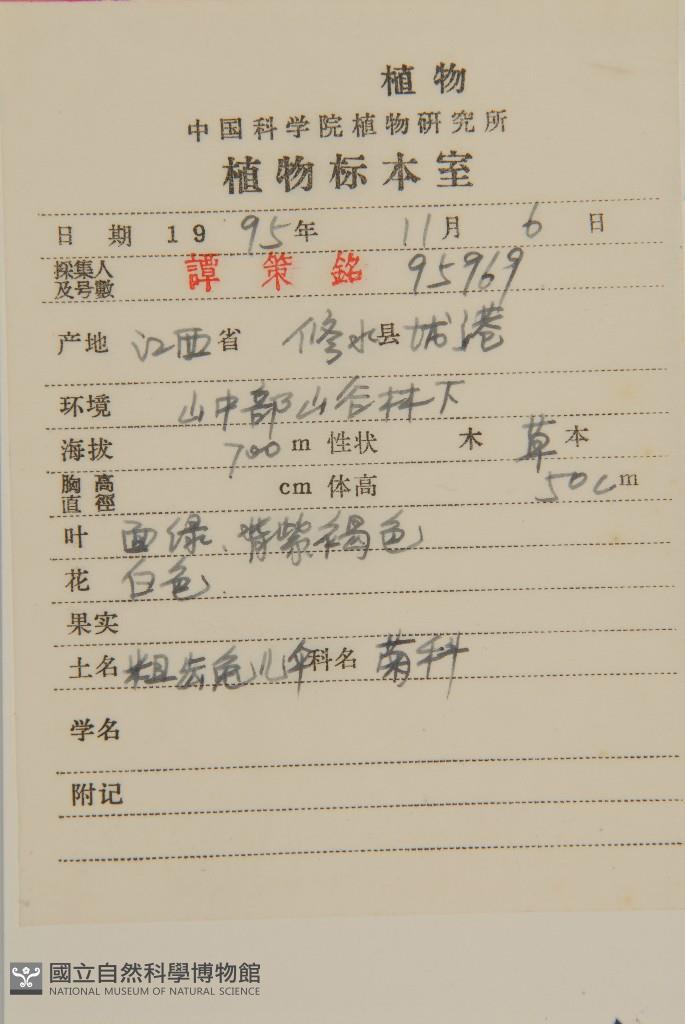 植物
中国科学院植物研究所
植物标本室
日期 1995年 11月 6日
採集人及号數 譚策銘 95969
产地 江西省 修水县 城港
环境 山中部山谷林下
海拔 700 m 性状 木 草本
胸高直徑 cm 体高 50cm
叶 面绿、背紫褐色
花 白色
果实
土名 粗齿兔儿伞 科名 菊科
学名
附记
國立自然科學博物館
NATIONAL MUSEUM OF NATURAL SCIENCE